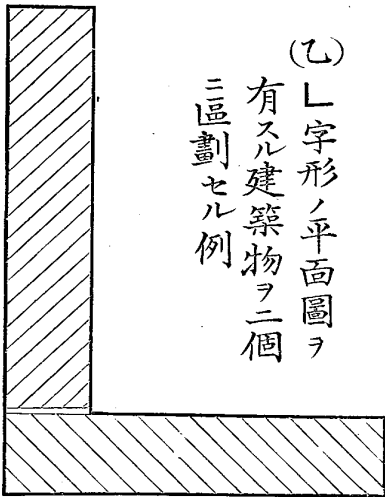 (乙)L字形ノ平面圖ヲ
有スル建築物ヲ二個
ニ區劃セル例